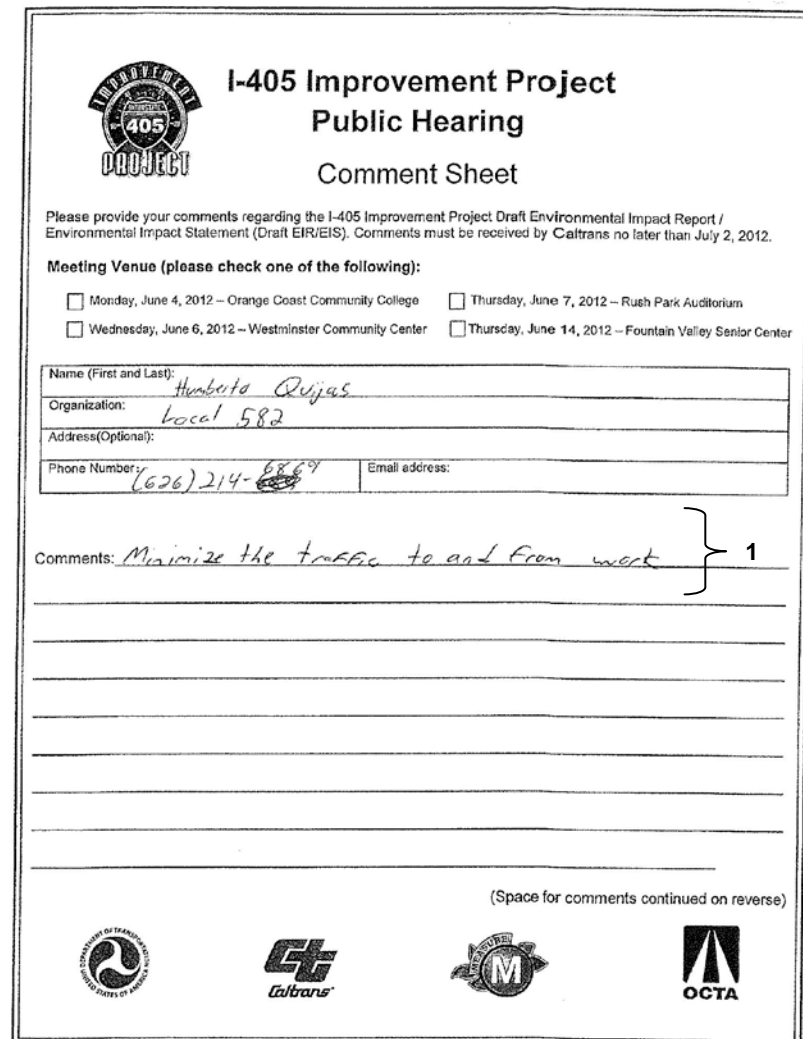 IMPROVEMENT
INTERSTATE
405
PROJECT
I-405 Improvement Project
Public Hearing
Comment Sheet
Please provide your comments regarding the I-405 Improvement Project Draft Environmental Impact Report /
Environmental Impact Statement (Draft EIR/EIS). Comments must be received by Caltrans no later than July 2, 2012.
Meeting Venue (please check one of the following):
Monday, June 4, 2012 – Orange Coast Community College
Thursday, June 7, 2012 – Rush Park Auditorium
Wednesday, June 6, 2012 – Westminster Community Center
Thursday, June 14, 2012 – Fountain Valley Senior Center
Name (First and Last): Humberto Quijas
Organization: Local 582
Address(Optional):
Phone Number: (626) 214-6869
Email address:
Comments: Minimize the traffic to and from work
1
(Space for comments continued on reverse)
DEPARTMENT OF TRANSPORTATION
UNITED STATES OF AMERICA
Caltrans
MEASURE
M
OCTA